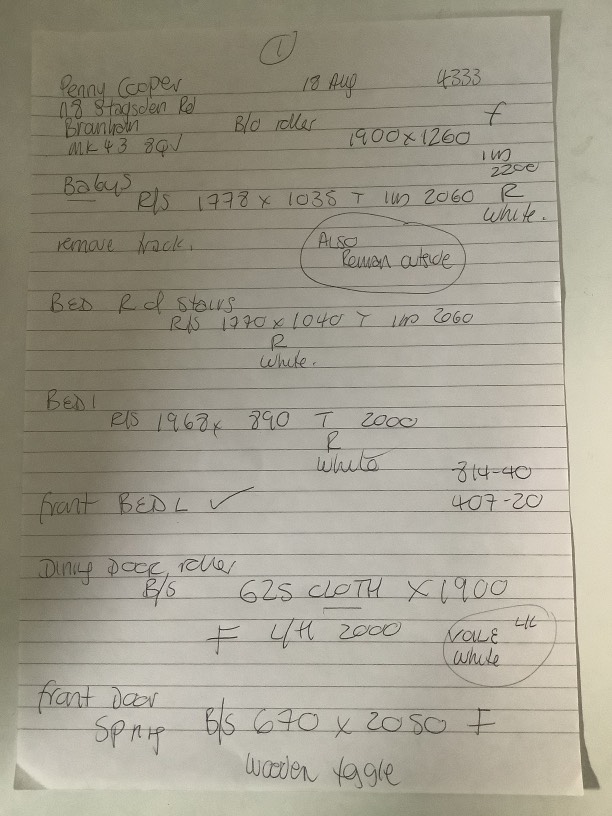 1
Penny Cooper 18 Aug 4333
118 Stagsden Rd
Bromham B/O roller f
MK43 8QV 1900 x 1260
IW
2200
Babys R
R/S 1778 x 1035 T IW 2060 White.
remove track.
ALSO
Roman outside
BED R of Stairs
R/S 1770 x 1040 T IW 2060
R
White.
BED 1
R/S 1968 x 890 T 2000
R
White
814-40
front BED L ✓ 407-20
Dining Door roller
B/S 625 CLOTH X 1900
F L/H 2000
VOILE
White
front Door
Spring B/S 670 x 2050 F
Wooden toggle